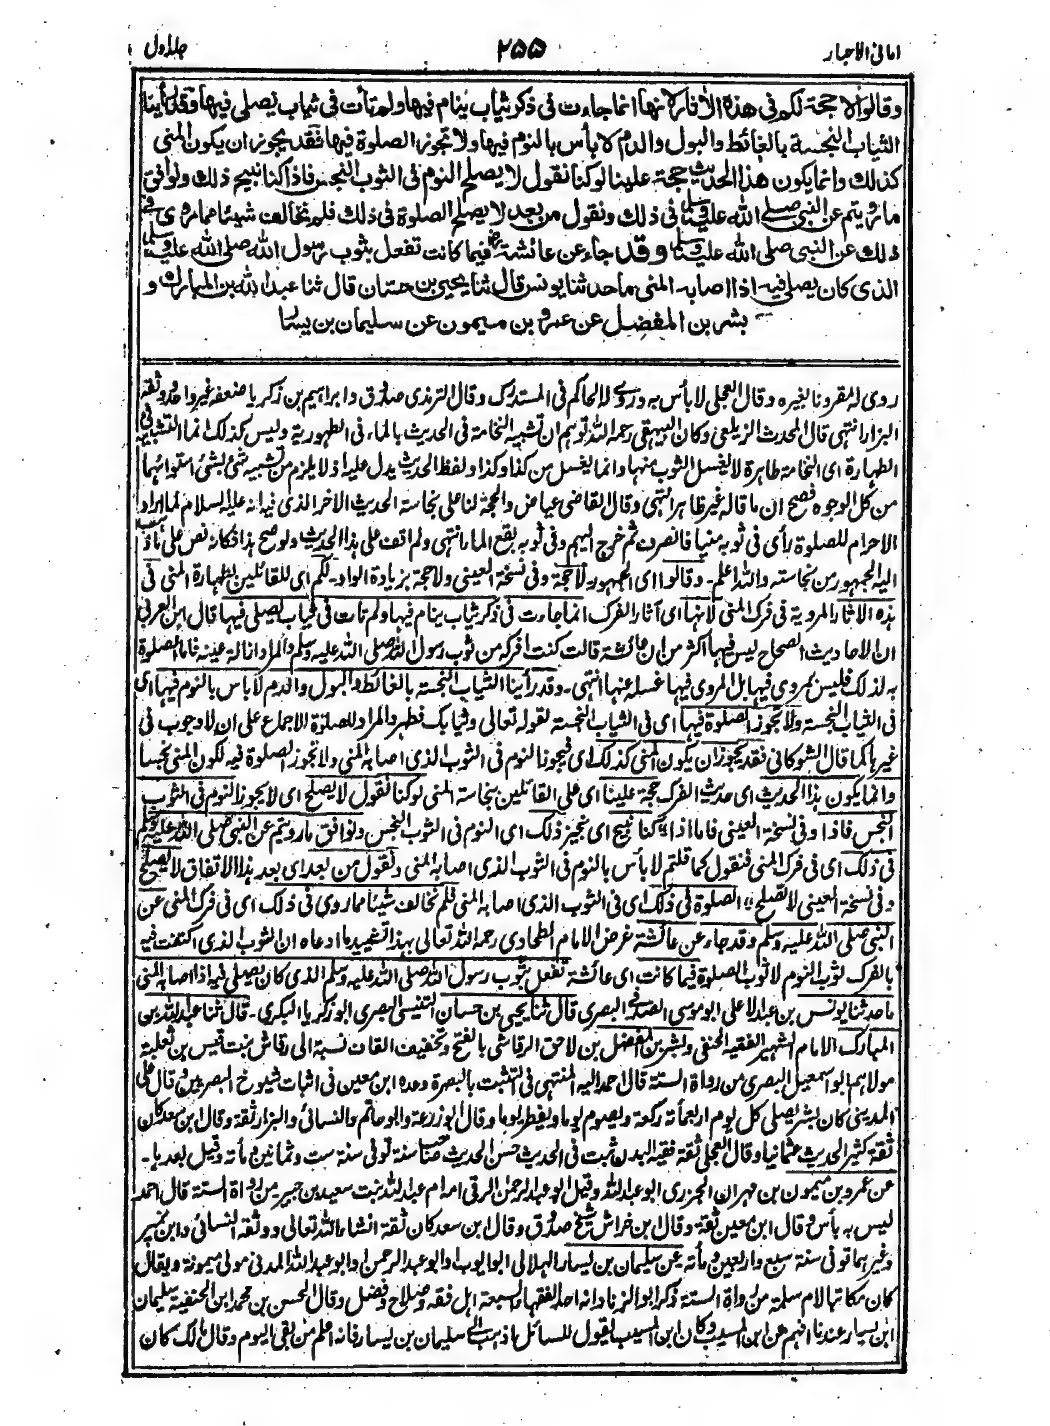 امانی الاحبار ۲۵۵ جلد اول
وقالوا لا حجة لكم في هذه الآثار لانها انما جاءت في ذكر ثياب ينام فيها ولم تأت في ثياب يصلي فيها وقد رأينا
الثياب النجسة بالغائط والبول والدم لا بأس بالنوم فيها ولا تجوز الصلوة فيها فقد يجوز ان يكون المنى
كذلك وانما يكون هذا الحديث حجة علينا لو كنا نقول لا يصلح النوم في الثوب النجس فاذا كنا نبيح ذلك ونوافق
ما رويتم عن النبي صلى الله عليه وسلم في ذلك ونقول من بعد لا يصلح الصلوة في ذلك فلم نخالف شيئا مما روى في
ذلك عن النبي صلى الله عليه وسلم وقد جاء عن عائشة فيما كانت تفعل بثوب رسول الله صلى الله عليه وسلم
الذى كان يصلي فيه اذا اصابه المنى ما حدثنا يونس قال ثنا يحيى بن حسان قال ثنا عبدالله بن المبارك و
بشر بن المفضل عن عمرو بن ميمون عن سليمان بن يسار
روى له مقرونا بغيره وقال العجلي لا بأس به وروى له الحاكم في المستدرك وقال الترمذى صدوق وابراهيم بن زكريا ضعفه غير واحد ووثقه
البزار انتهى قال المحدث الزيلعى وكان البيهقي رحمه الله توهم ان تشبيه النخامة في الحديث بالماء في الطهورية وليس كذلك انما التشبيه في
الطهارة اى النخامة طاهرة لا يغسل الثوب منها وانما يغسل من كذا وكذا ولفظ الحديث يدل عليه اذ لا يلزم من تشبيه شئ بشئ استوائهما
من كل الوجوه فصح ان ما قاله غير ظاهر انتهى وقال القاضي عياض والحجة لنا على نجاسة الحديث الاخر الذى فيه انه عليه السلام لما اراد
الاحرام للصلوة رأى في ثوبه منيا فانصرف ثم خرج اليهم وفي ثوبه بقع الماء انتهى ولم اقف على هذا الحديث ولو صح هذا فكانه نص على ما ذهب
اليه الجمهور من نجاسته والله اعلم - وقالوا اى الجمهور لا حجة وفي نسخة العينى ولا حجة بزيادة الواو - لكم اى للقائلين بطهارة المنى في
هذه الآثار المروية في فرك المنى لانها اى آثار الفرك انما جاءت في ذكر ثياب ينام فيها ولم تأت في ثياب يصلي فيها قال ابن العربى
ان الاحاديث الصحاح ليس فيها اكثر من ان عائشة قالت كنت افركه من ثوب رسول الله صلى الله عليه وسلم والمراد ازالة عينه فاما الصلوة
به لذلك فليس بمروى فيها بل المروى فيها غسله عنها انتهى - وقد رأينا الثياب النجسة بالغائط والبول والدم لا باس بالنوم فيها اى
في الثياب النجسة ولا تجوز الصلوة فيها اى في الثياب النجسة لقوله تعالى وثيابك فطهر والمراد للصلوة للاجماع على ان لا وجوب في
غيرها كما قال الشوكانى فقد يجوز ان يكون المنى كذلك اى فيجوز النوم في الثوب الذى اصابه المنى ولا تجوز الصلوة فيه لكون المنى نجسا
وانما يكون هذا الحديث اى حديث الفرك حجة علينا اى على القائلين بنجاسة المنى لو كنا نقول لا يصلح اى لا يجوز النوم في الثوب
النجس فاذا وفي نسخة العينى فاما اذا كنا نبيح اى نجيز ذلك اى النوم في الثوب النجس ونوافق ما رويتم عن النبي صلى الله عليه وسلم
في ذلك اى في فرك المنى فنقول كما قلتم لا بأس بالنوم في الثوب الذى اصابه المنى ونقول من بعد اى بعد هذا الاتفاق لا يصلح
وفي نسخة العينى لا تصلح، الصلوة في ذلك اى في الثوب الذى اصابه المنى فلم نخالف شيئا مما روى في ذلك اى في فرك المنى عن
النبي صلى الله عليه وسلم وقد جاء عن عائشة غرض الامام الطحاوى رحمه الله تعالى بهذا تشييد ما ادعاه ان الثوب الذى اكتفت فيه
بالفرك ثوب النوم لا ثوب الصلوة فيما كانت اى عائشة تفعل بثوب رسول الله صلى الله عليه وسلم الذى كان يصلي فيه اذا اصابه المنى
ما حدثنا يونس بن عبدالاعلى ابو موسى الصدفى البصرى قال ثنا يحيى بن حسان التنيسى البصرى ابو زكريا البكرى - قال ثنا عبدالله بن
المبارك الامام الشهير الفقيه الحنفى وبشر بن المفضل بن لاحق الرقاشى بالفتح وتخفيف القاف نسبة الى رقاش بنت قيس بن ثعلبة
مولاهم ابو اسمعيل البصرى من رواة الستة قال احمد اليه المنتهى في التثبت بالبصرة وعده ابن معين في اثبات شيوخ البصريين وقال على
المدينى كان بشر يصلي كل يوم اربعمأته ركعة ويصوم يوما ويفطر يوما وقال ابو زرعة وابو حاتم والنسائى والبزار ثقة وقال ابن سعد كان
ثقة كثير الحديث عثمانيا وقال العجلى ثقة فقيه البدن ثبت في الحديث حسن الحديث صاحب سنة توفى سنة ست وثمانين ومأته وقيل بعدها -
عن عمرو بن ميمون بن مهران الجزرى ابو عبدالله وقيل ابو عبدالرحمن الرقى امه ام عبدالله بنت سعيد بن جبير من رواة الستة قال احمد
ليس به بأس وقال ابن معين ثقة وقال ابن خراش شيخ صدوق وقال ابن سعد كان ثقة انشاء الله تعالى ووثقه النسائى وابن نمير
وغيرهما توفى سنة سبع واربعين ومأته عن سليمان بن يسار الهلالى ابو ايوب وابو عبدالرحمن وابو عبدالله المدنى مولى ميمونة ويقال
كان مكاتبا لام سلمة من رواة الستة ذكر ابو الزناد انه احد الفقهاء السبعة اهل فقه وصلاح وفضل وقال الحسن بن محمد ابن الحنفية سليمان
ابن يسار عندنا افهم من ابن المسيب وكان ابن المسيب يقول للسائل اذهب الى سليمان بن يسار فانه اعلم من بقى اليوم وقال مالك كان